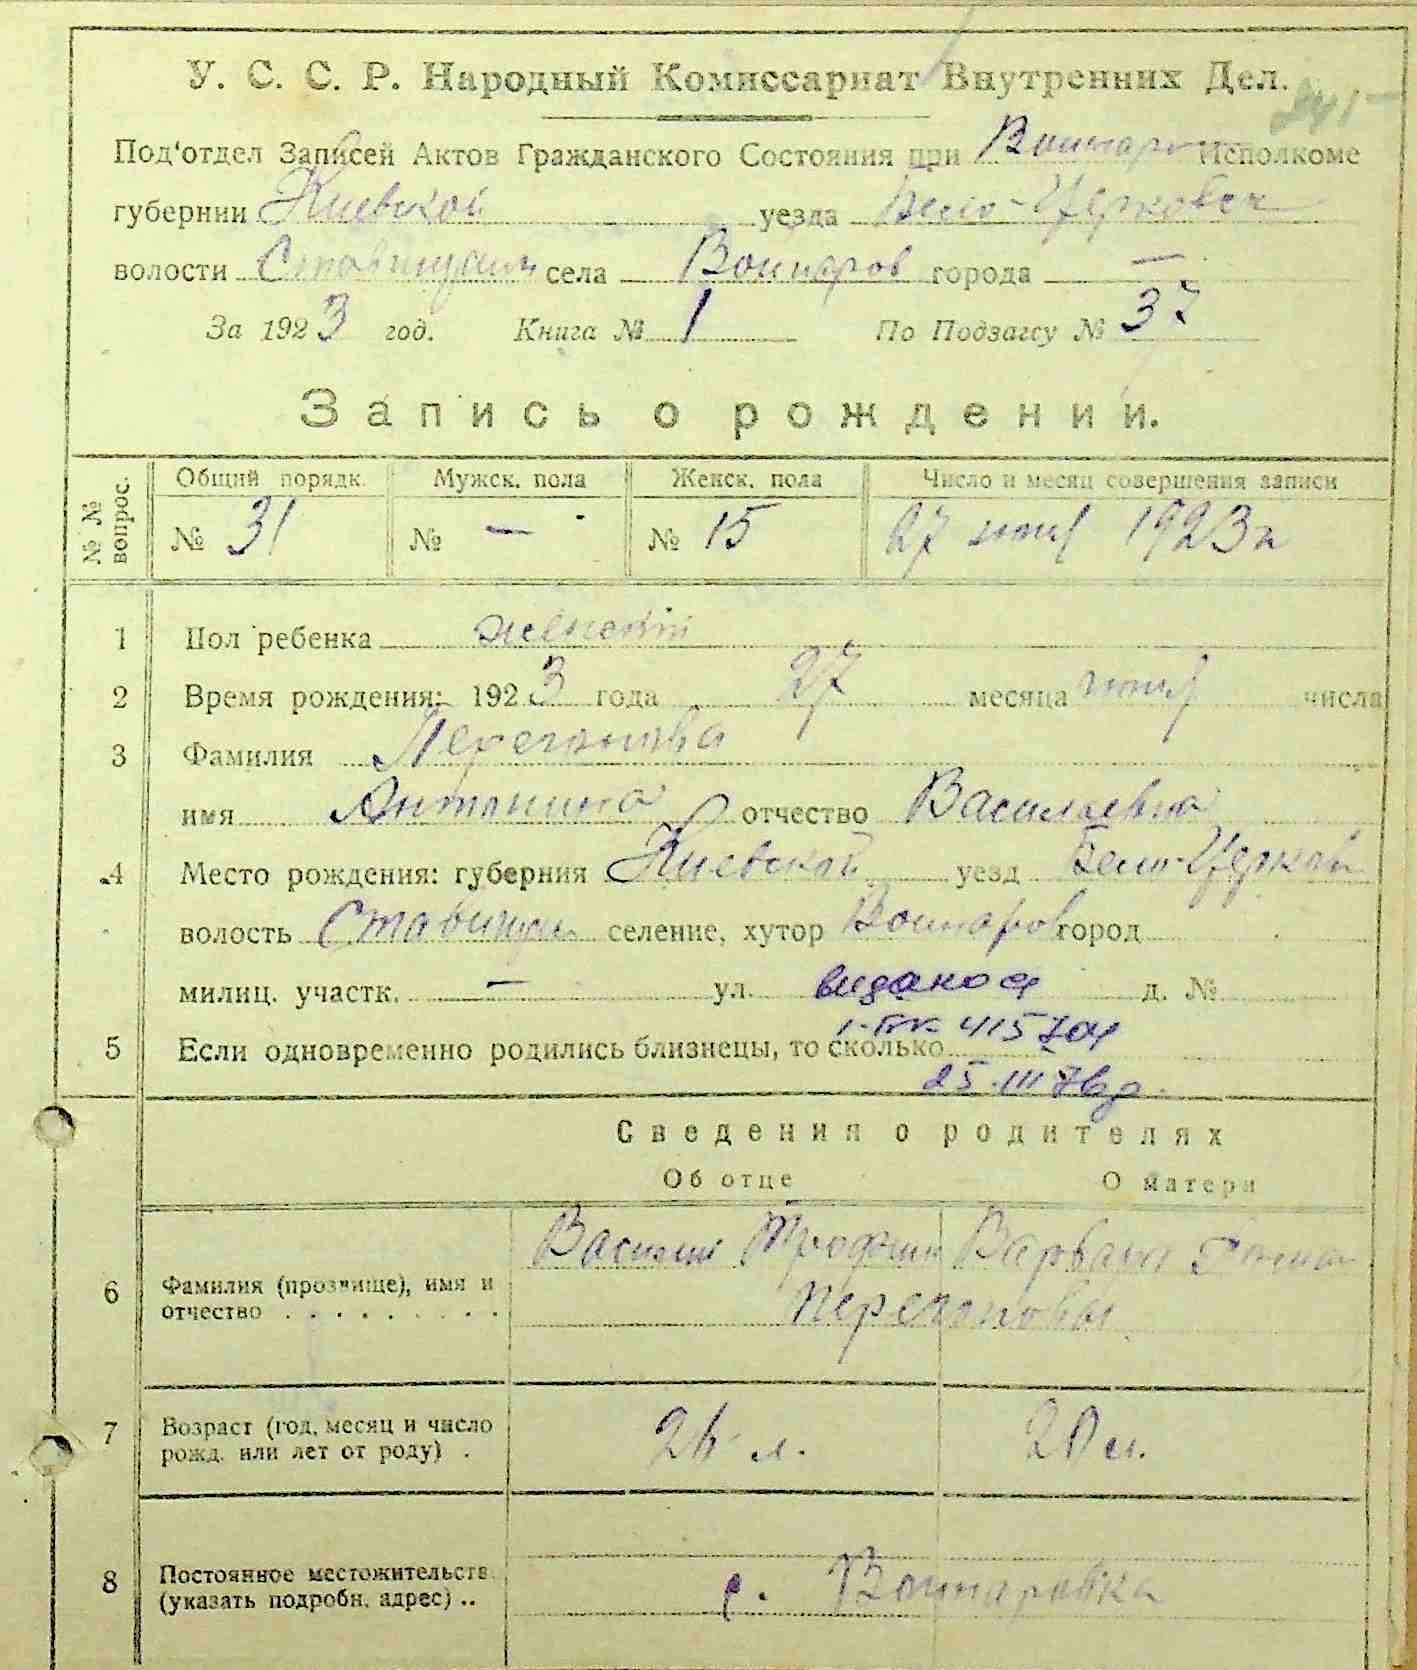 У. С. С. Р. Народный Комиссариат Внутренних Дел.
241
Под‘отдел Записей Актов Гражданского Состояния при Исполкоме
губернии Киевской уезда Бело-Церковск
волости села города —
За 1923 год. Книга № 1 По Подзагсу № 37
Запись о рождении.
№ № вопрос.
Общий порядк. Мужск. пола Женск. пола Число и месяц совершения записи
№ 31 № — № 15 27 1923 г
1 Пол ребенка женский
2 Время рождения: 1923 года 27 месяца числа
3 Фамилия
имя Антонина отчество Васильевна
4 Место рождения: губерния Киевской уезд Бело-Церков
волость селение, хутор город
милиц. участк. — ул. д. №
видано св
5 Если одновременно родились близнецы, то сколько
415704
25.III
Сведения о родителях
Об отце О матери
6 Фамилия (прозвище), имя и
отчество . . . . . . . .
Василий Трофим Варвара
7 Возраст (год, месяц и число
рожд. или лет от роду) .
л. 20 л.
8 Постоянное местожительств.
(указать подробн. адрес) ..
с.